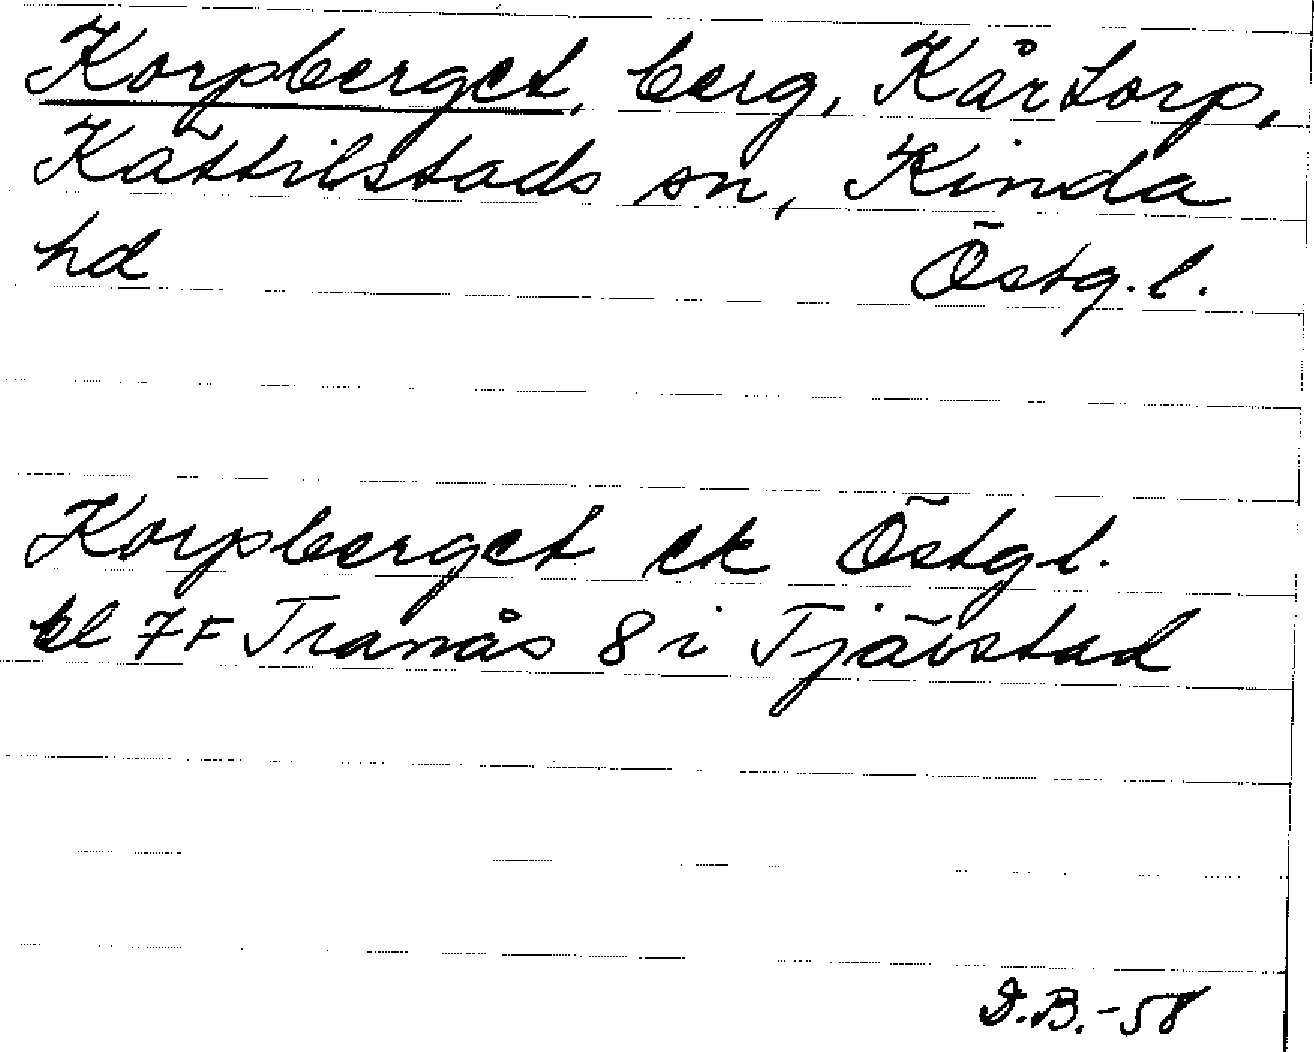 Korpberget, berg, Kårtorp,
Kättilstads sn, Kinda
hd Östg.l.
Korpberget ek Östgl.
bl 7F Tranås 8 i Tjävstad
D.B.-58